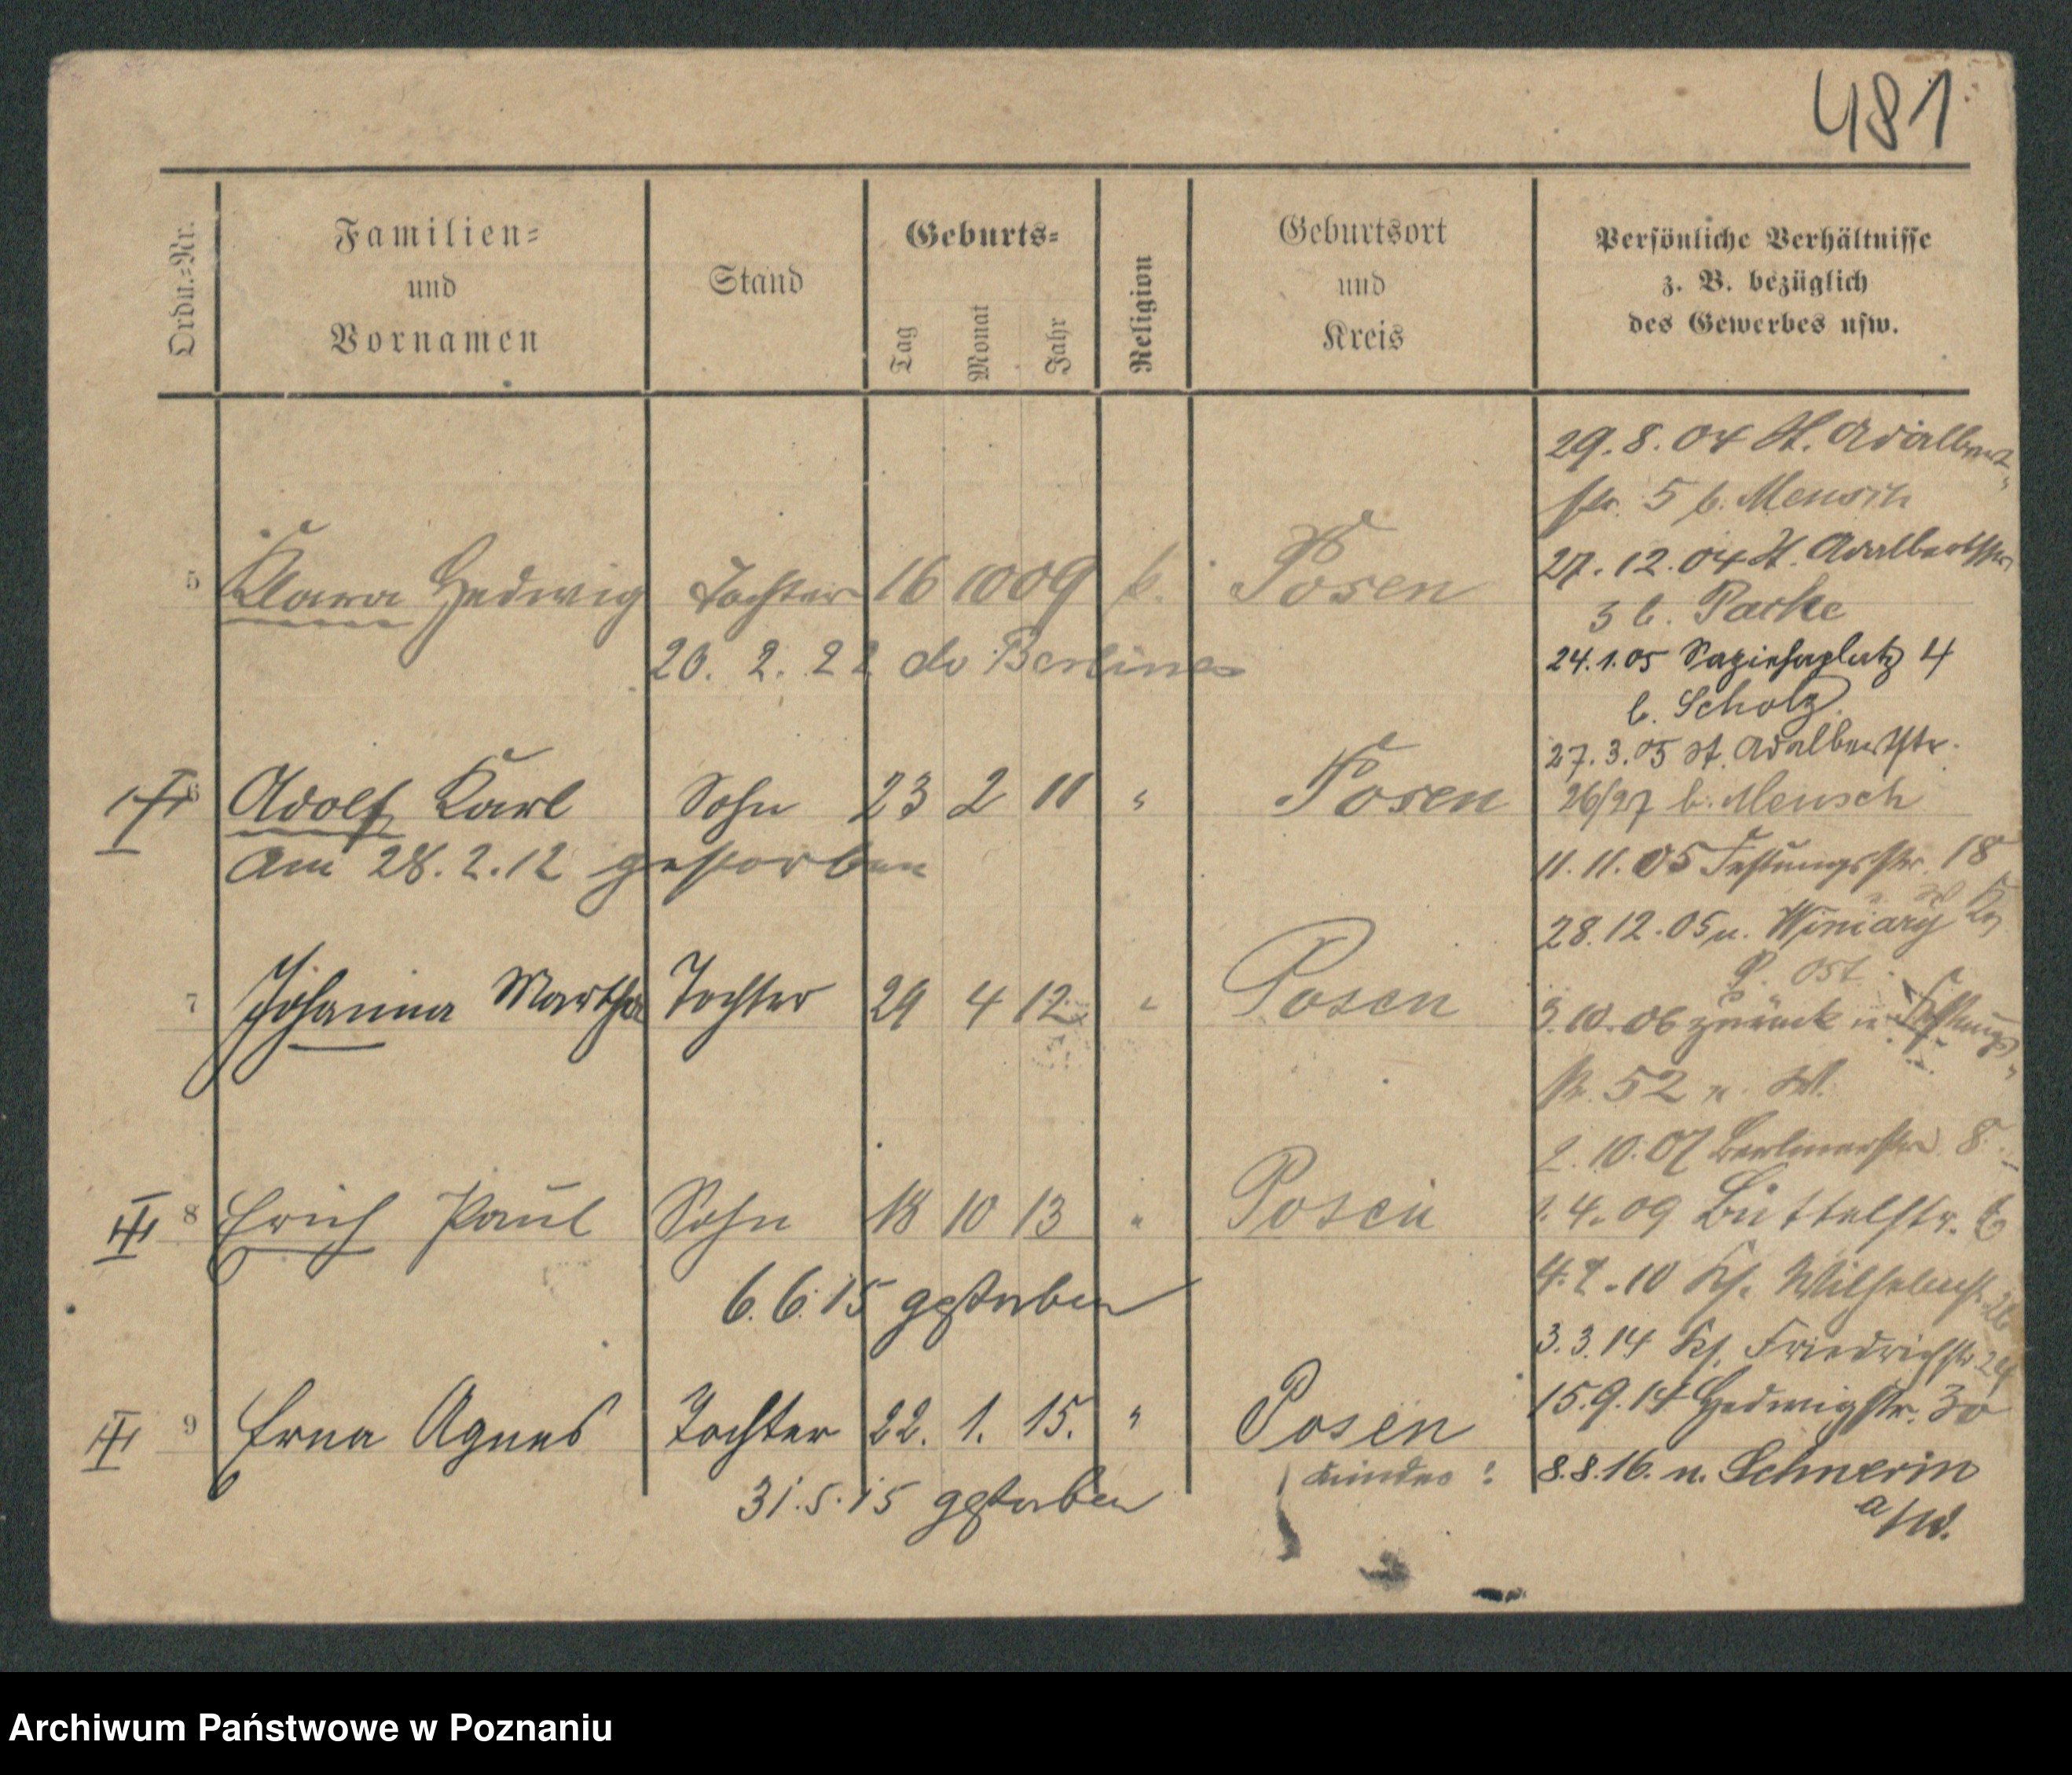 481
Ordn.=Nr.
Familien=
und
Vornamen
Stand
Geburts=
Tag
Monat
Jahr
Religion
Geburtsort
und
Kreis
Persönliche Verhältnisse
z. B. bezüglich
des Gewerbes usw.
5 Klara Hedwig Tochter 16 10 09 k. Posen
20. 2. 22 do Berlines
6 Adolf Karl Sohn 23 2 11 " Posen
Am 28.2.12 gestorben
7 Johanna Martha Tochter 29 4 12 " Posen
8 Erich Paul Sohn 18 10 13 " Posen
6.6.15 gestorben
9 Erna Agnes Tochter 22. 1. 15. " Posen
Kinder !
31.5.15 gestorben
29.8.04 St. Adalbert-
str. 5 b. Mensch
27.12.04 St. Adalbertstr
3 b. Paske
24.1.05 Sapiehaplatz 4
b. Scholz
27.3.05 St. Adalbertstr.
26/27 b. Mensch
11.11.05 Festungsstr. 18
28.12.05 n. Winiary
P. Ost.
3.10.06 zurück n. Festungs-
str. 52
2.10.07 Berlinerstr. 8
1.4.09 Büttelstr. 6
4.7.10 Ks. Wilhelmstr. 26
3.3.14 Ks. Friedrichstr. 24
15.9.14 Hedwigstr. 30
8.8.16. n. Schwerin
a/W.
Archiwum Państwowe w Poznaniu